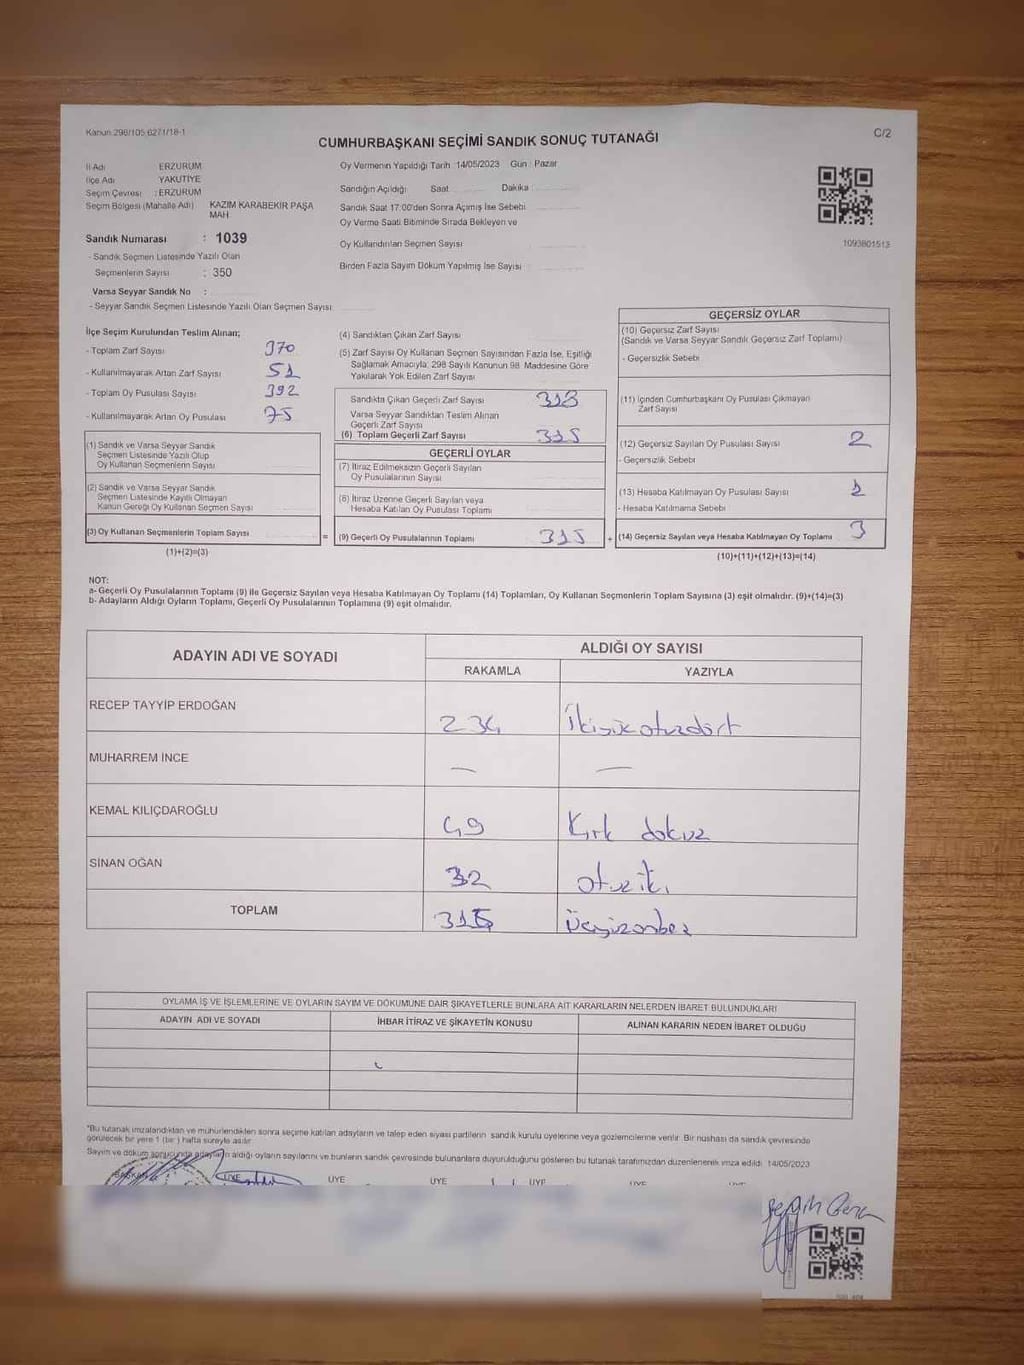 Kanun:298/105,6271/18-1
C/2
CUMHURBAŞKANI SEÇİMİ SANDIK SONUÇ TUTANAĞI
İl Adı ERZURUM
İlçe Adı YAKUTİYE
Seçim Çevresi : ERZURUM
Seçim Bölgesi (Mahalle Adı) KAZIM KARABEKİR PAŞA
MAH.
Sandık Numarası : 1039
- Sandık Seçmen Listesinde Yazılı Olan
Seçmenlerin Sayısı : 350
Varsa Seyyar Sandık No :
- Seyyar Sandık Seçmen Listesinde Yazılı Olan Seçmen Sayısı
Oy Vermenin Yapıldığı Tarih 14/05/2023 Gün : Pazar
Sandığın Açıldığı Saat Dakika
Sandık Saat 17:00'den Sonra Açımış İse Sebebi
Oy Verme Saati Bitiminde Sırada Bekleyen ve
Oy Kullandırılan Seçmen Sayısı
Birden Fazla Sayım Döküm Yapılmış İse Sayısı
1093801513
İlçe Seçim Kurulundan Teslim Alınan;
- Toplam Zarf Sayısı 370
- Kullanılmayarak Artan Zarf Sayısı 51
- Toplam Oy Pusulası Sayısı 392
- Kullanılmayarak Artan Oy Pusulası 75
(1) Sandık ve Varsa Seyyar Sandık
Seçmen Listesinde Yazılı Olup
Oy Kullanan Seçmenlerin Sayısı
(2) Sandık ve Varsa Seyyar Sandık
Seçmen Listesinde Kayıtlı Olmayan
Kanun Gereği Oy Kullanan Seçmen Sayısı
(3) Oy Kullanan Seçmenlerin Toplam Sayısı
(1)+(2)=(3)
(4) Sandıktan Çıkan Zarf Sayısı
(5) Zarf Sayısı Oy Kullanan Seçmen Sayısından Fazla İse, Eşitliği
Sağlamak Amacıyla, 298 Sayılı Kanunun 98. Maddesine Göre
Yakılarak Yok Edilen Zarf Sayısı
Sandıkta Çıkan Geçerli Zarf Sayısı
Varsa Seyyar Sandıktan Teslim Alınan
Geçerli Zarf Sayısı
(6) Toplam Geçerli Zarf Sayısı 315
GEÇERLİ OYLAR
(7) İtiraz Edilmeksizin Geçerli Sayılan
Oy Pusulalarının Sayısı
(8) İtiraz Üzerine Geçerli Sayılan veya
Hesaba Katılan Oy Pusulası Toplamı
=
(9) Geçerli Oy Pusulalarının Toplamı 315
+
GEÇERSİZ OYLAR
(10) Geçersiz Zarf Sayısı
(Sandık ve Varsa Seyyar Sandık Geçersiz Zarf Toplamı)
- Geçersizlik Sebebi
(11) İçinden Cumhurbaşkanı Oy Pusulası Çıkmayan
Zarf Sayısı
(12) Geçersiz Sayılan Oy Pusulası Sayısı 2
- Geçersizlik Sebebi
(13) Hesaba Katılmayan Oy Pusulası Sayısı 1
- Hesaba Katılmama Sebebi
(14) Geçersiz Sayılan veya Hesaba Katılmayan Oy Toplamı 3
(10)+(11)+(12)+(13)=(14)
NOT:
a- Geçerli Oy Pusulalarının Toplamı (9) ile Geçersiz Sayılan veya Hesaba Katılmayan Oy Toplamı (14) Toplamları, Oy Kullanan Seçmenlerin Toplam Sayısına (3) eşit olmalıdır. (9)+(14)=(3)
b- Adayların Aldığı Oyların Toplamı, Geçerli Oy Pusulalarının Toplamına (9) eşit olmalıdır.
ADAYIN ADI VE SOYADI
ALDIĞI OY SAYISI
RAKAMLA YAZIYLA
RECEP TAYYİP ERDOĞAN 234 İkiyüzotuzdört
MUHARREM İNCE — —
KEMAL KILIÇDAROĞLU 49 Kırk dokuz
SİNAN OĞAN 32 otuziki
TOPLAM 315 Üçyüzonbeş
OYLAMA İŞ VE İŞLEMLERİNE VE OYLARIN SAYIM VE DÖKÜMÜNE DAİR ŞİKAYETLERLE BUNLARA AİT KARARLARIN NELERDEN İBARET BULUNDUKLARI
ADAYIN ADI VE SOYADI İHBAR İTİRAZ VE ŞİKAYETİN KONUSU ALINAN KARARIN NEDEN İBARET OLDUĞU
*Bu tutanak imzalandıktan ve mühürlendikten sonra seçime katılan adayların ve talep eden siyasi partilerin sandık kurulu üyelerine veya gözlemcilerine verilir. Bir nüshası da sandık çevresinde
görülecek bir yere 1 (bir ) hafta süreyle asılır.
Sayım ve döküm sonucunda adayların aldığı oyların sayılarını ve bunların sandık çevresinde bulunanlara duyurulduğunu gösteren bu tutanak tarafımızdan düzenlenerek imza edildi. 14/05/2023
BAŞKAN ÜYE ÜYE ÜYE ÜYE